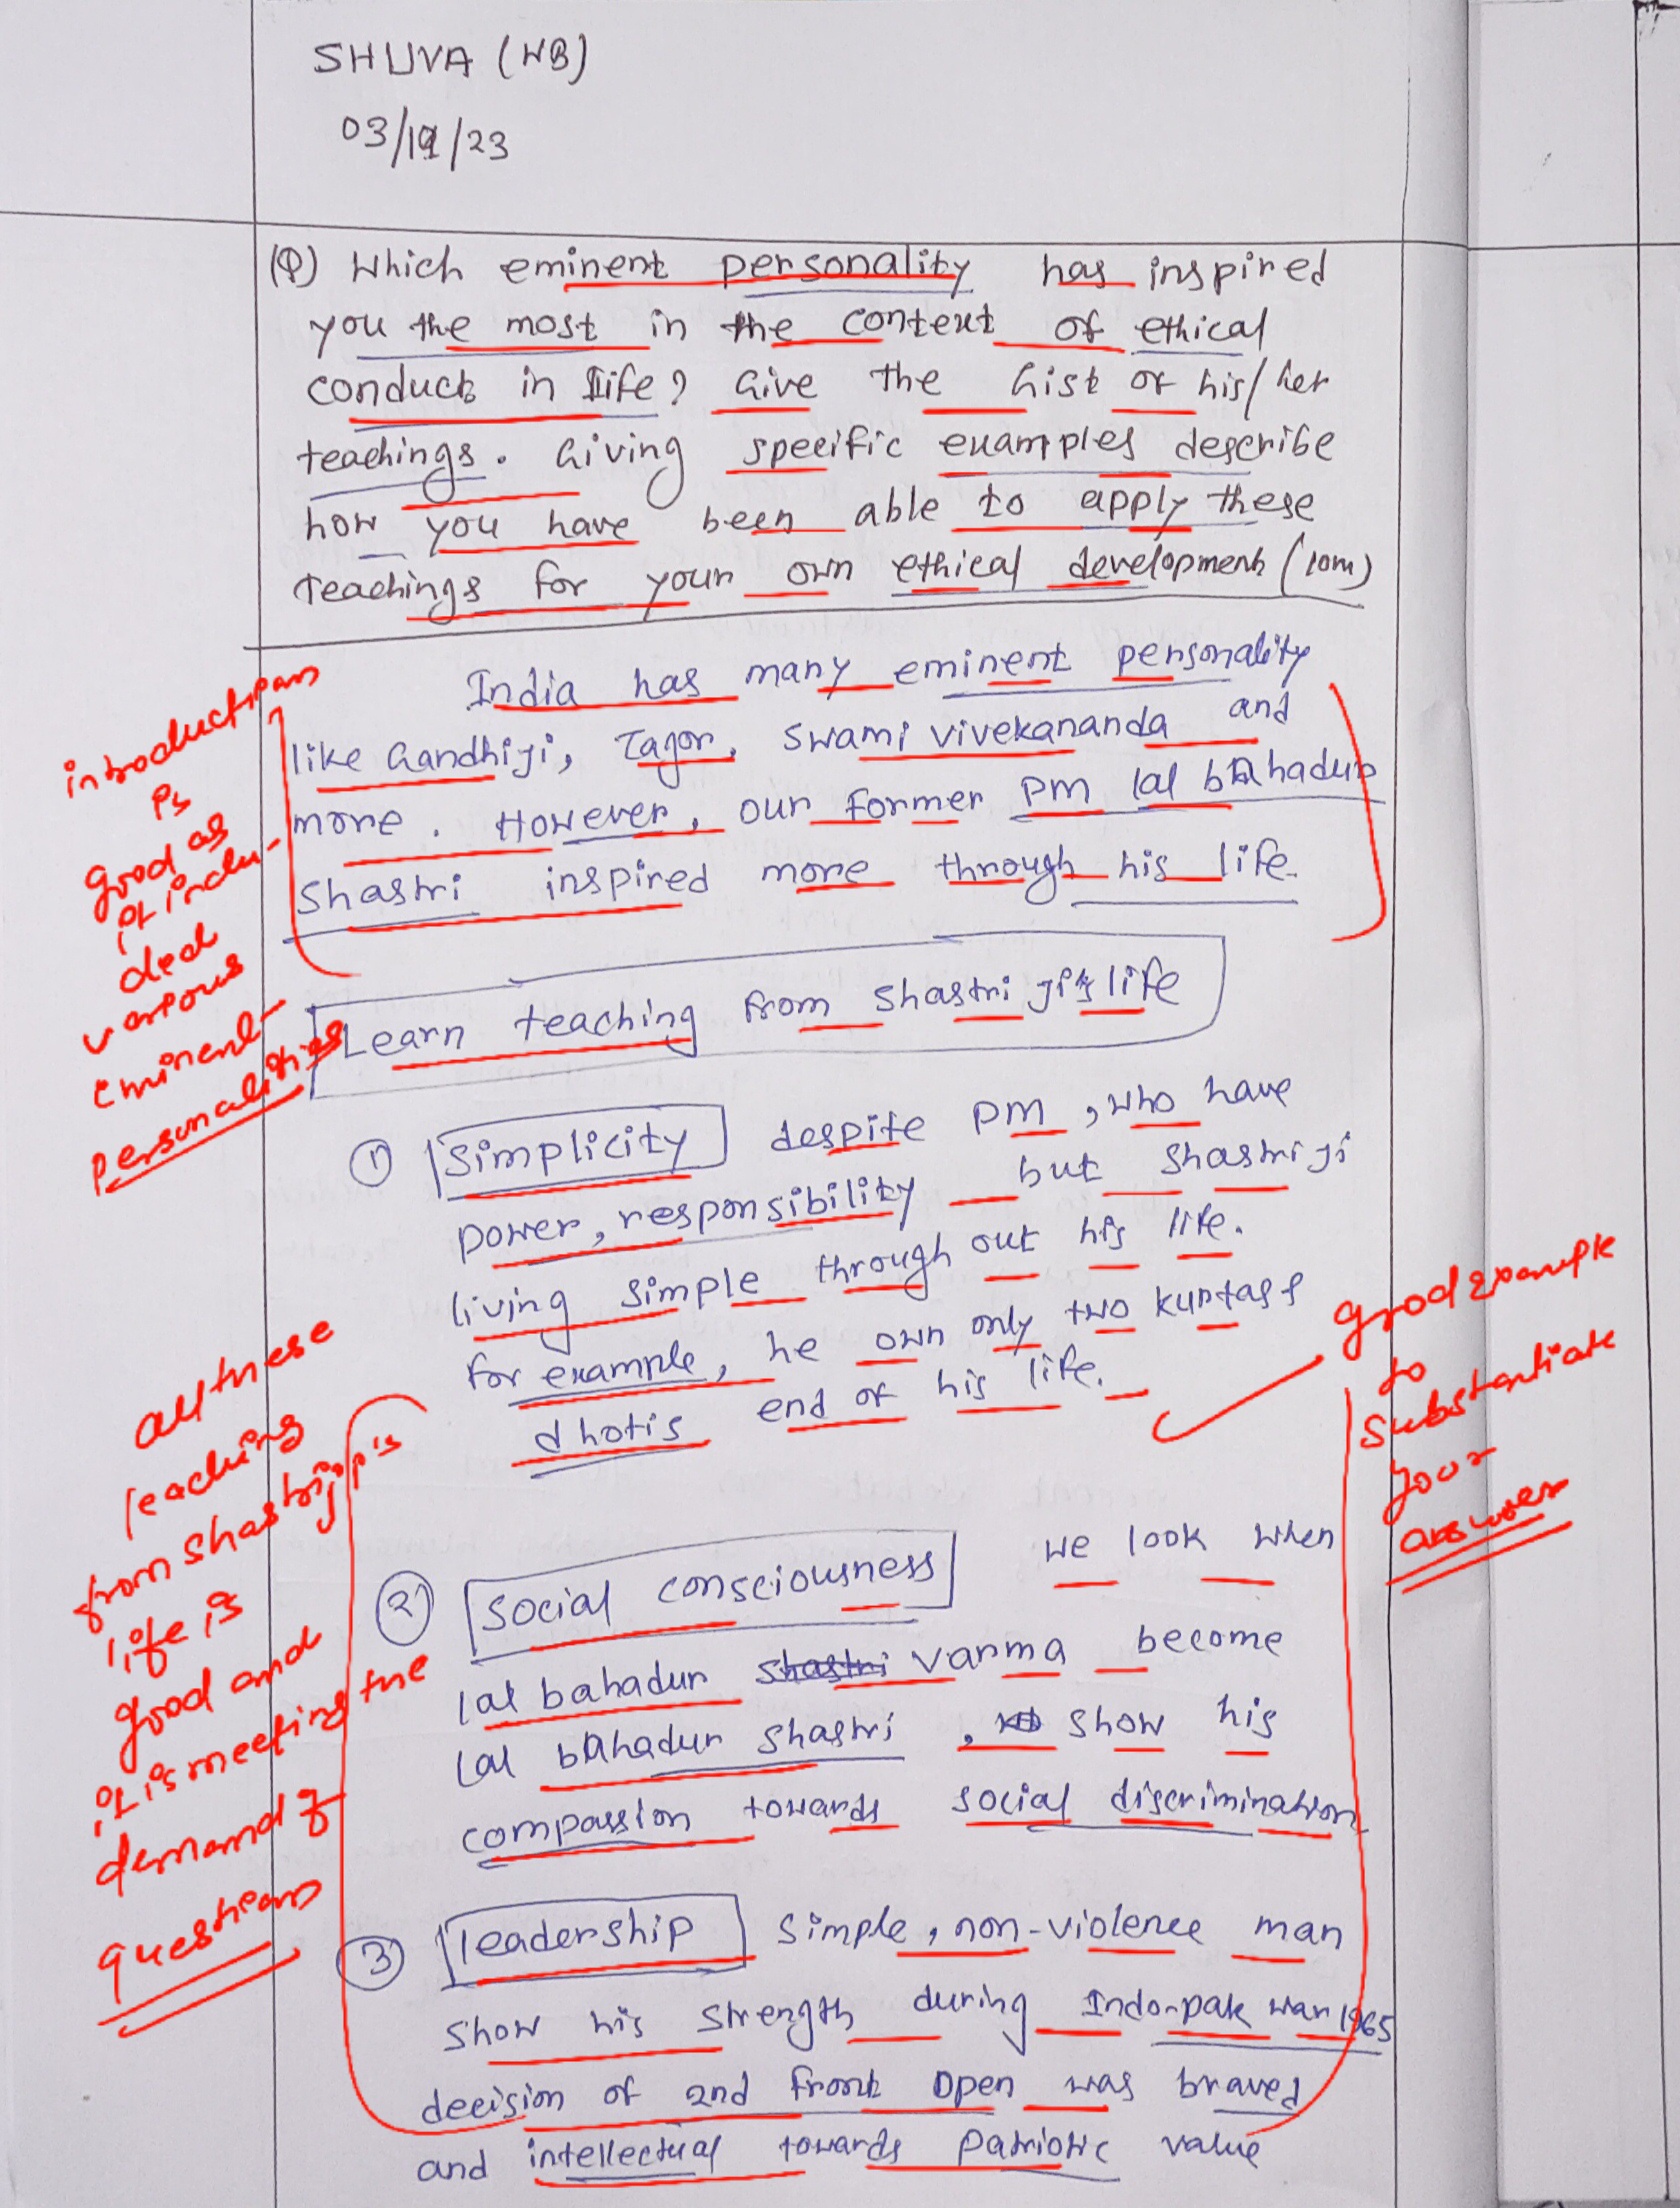 SHUVA (WB)
03/19/23
(Q) Which eminent personality has inspired
you the most in the context of ethical
conduct in life? Give the Gist of his/her
teachings. Giving specific examples describe
how you have been able to apply these
teachings for your own ethical development (10m)
India has many eminent personality
like Gandhiji, Tagor, Swami vivekananda and
more. However, our former PM lal bahadur
Shastri inspired more through his life.
Learn teaching from Shastri ji's life
① Simplicity despite PM, who have
power, responsibility but Shastri ji
living simple through out his life.
for example, he own only two kurtas &
dhotis end of his life.
② Social consciousness we look when
lal bahadur Shastri varma become
Lal bahadur Shastri, show his
compassion towards social discrimination
③ leadership simple, non-violence man
show his strength during Indo-pak war 1965
decision of 2nd front open was braved
and intellectual towards Patriotic value
introduction
is
good as
it inclu-
ded
various
eminent
personalities
all these
teaching
from shastriji's
life is
good and
it is meeting the
demand of
question
good example
to
substantiate
your
answer